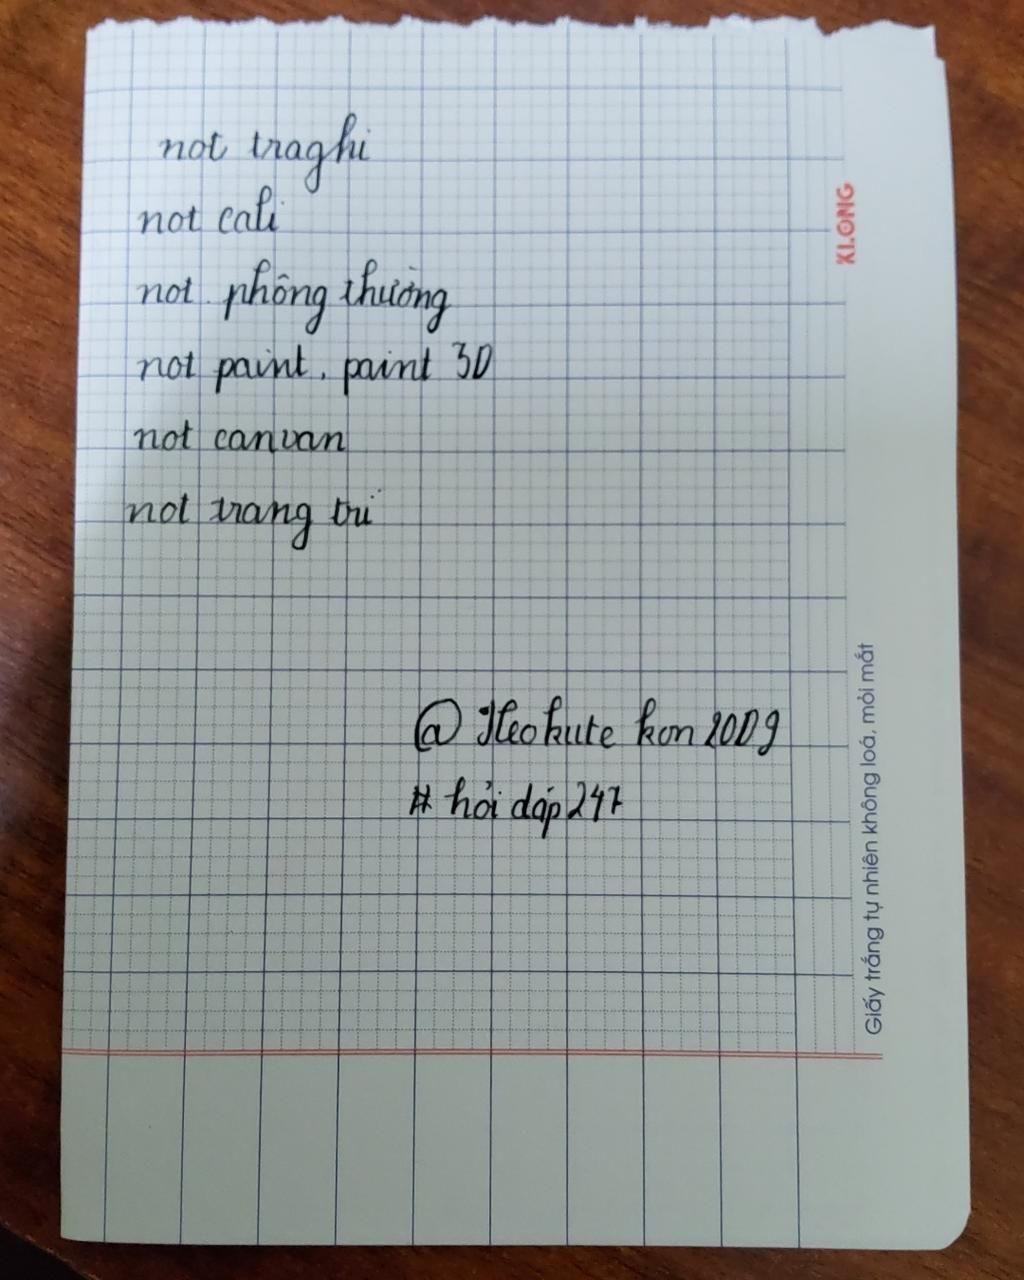 not traghi
not cali
not phông thường
not paint, paint 3D
not canvan
not trang trí
@ Heokute kon2009
# hỏi dáp247
KLONG
Giấy trắng tự nhiên không loá, mỏi mắt